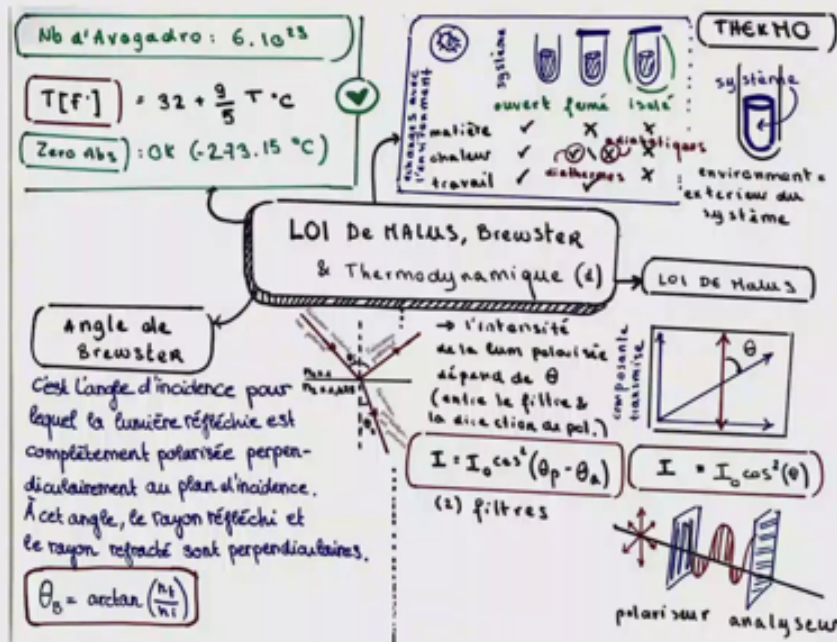 Nb d'Avogadro : 6.10²³
T[F°] = 32 + 9/5 T °C
Zero Abs : 0K (-273.15 °C)
échanges avec l'environment
système
ouvert fermé isolé
matière ✓ × ×
chaleur ✓ ✓ \ × ×
adiabatiques
diathermes
travail ✓ ✓ ×
THERMO
système
environment =
exterieur du
système
LOI De MALUS, Brewster
& Thermodynamique (1)
LOI DE MALUS
Angle de
Brewster
C'est l'angle d'incidence pour
lequel la lumière réfléchie est
complètement polarisée perpen-
diculairement au plan d'incidence.
À cet angle, le rayon réfléchi et
le rayon refracté sont perpendiculaires.
θB = arctan (nt/ni)
→ l'intensité
de la lum polarisée
dépend de θ
(entre le filtre &
la direction de pol.)
I = I₀ cos²(θp - θa)
(2) filtres
composante
transmise
θ
I = I₀ cos²(θ)
polariseur analyseur